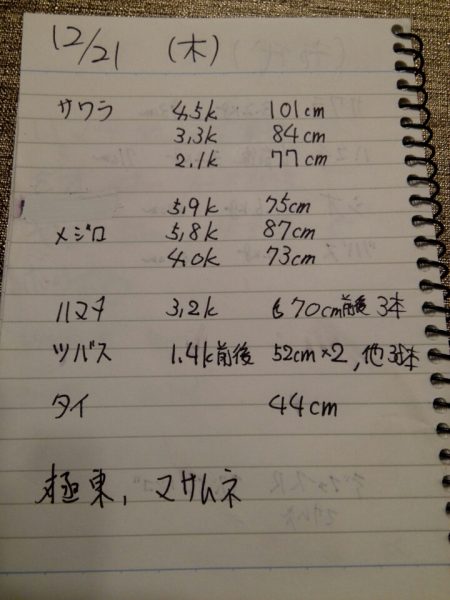 12/21 (木)
サワラ 4,5k 101cm
3,3k 84cm
2.1k 77cm
5,9k 75cm
メジロ 5,8k 87cm
4,0k 73cm
ハマチ 3,2k 70cm前後 3本
ツバス 1.4k前後 52cm×2,他3本
タイ 44cm
極東, マサムネ